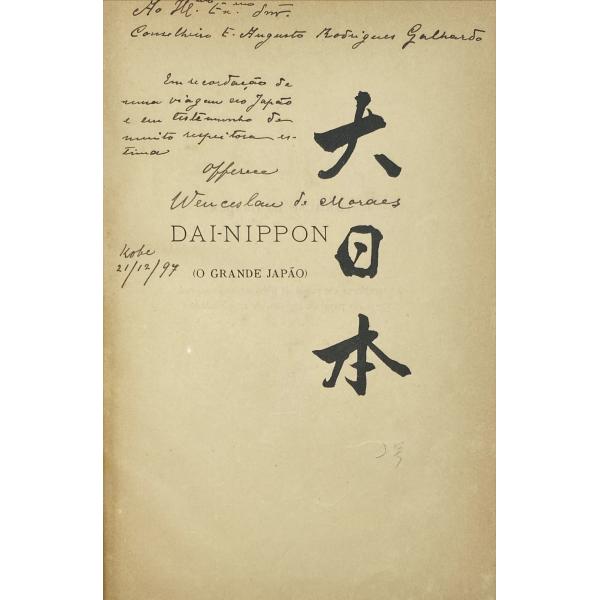 Ao Ill.mo Ex.mo Snr.
Conselheiro E. Augusto Rodrigues Galhardo
Em recordação de
uma viagem ao Japão
e em testemunho de
muito respeitosa es-
tima
Offerece
Wenceslau de Moraes
DAI-NIPPON
Kobe
21/12/97
(O GRANDE JAPÃO)
大
日
本